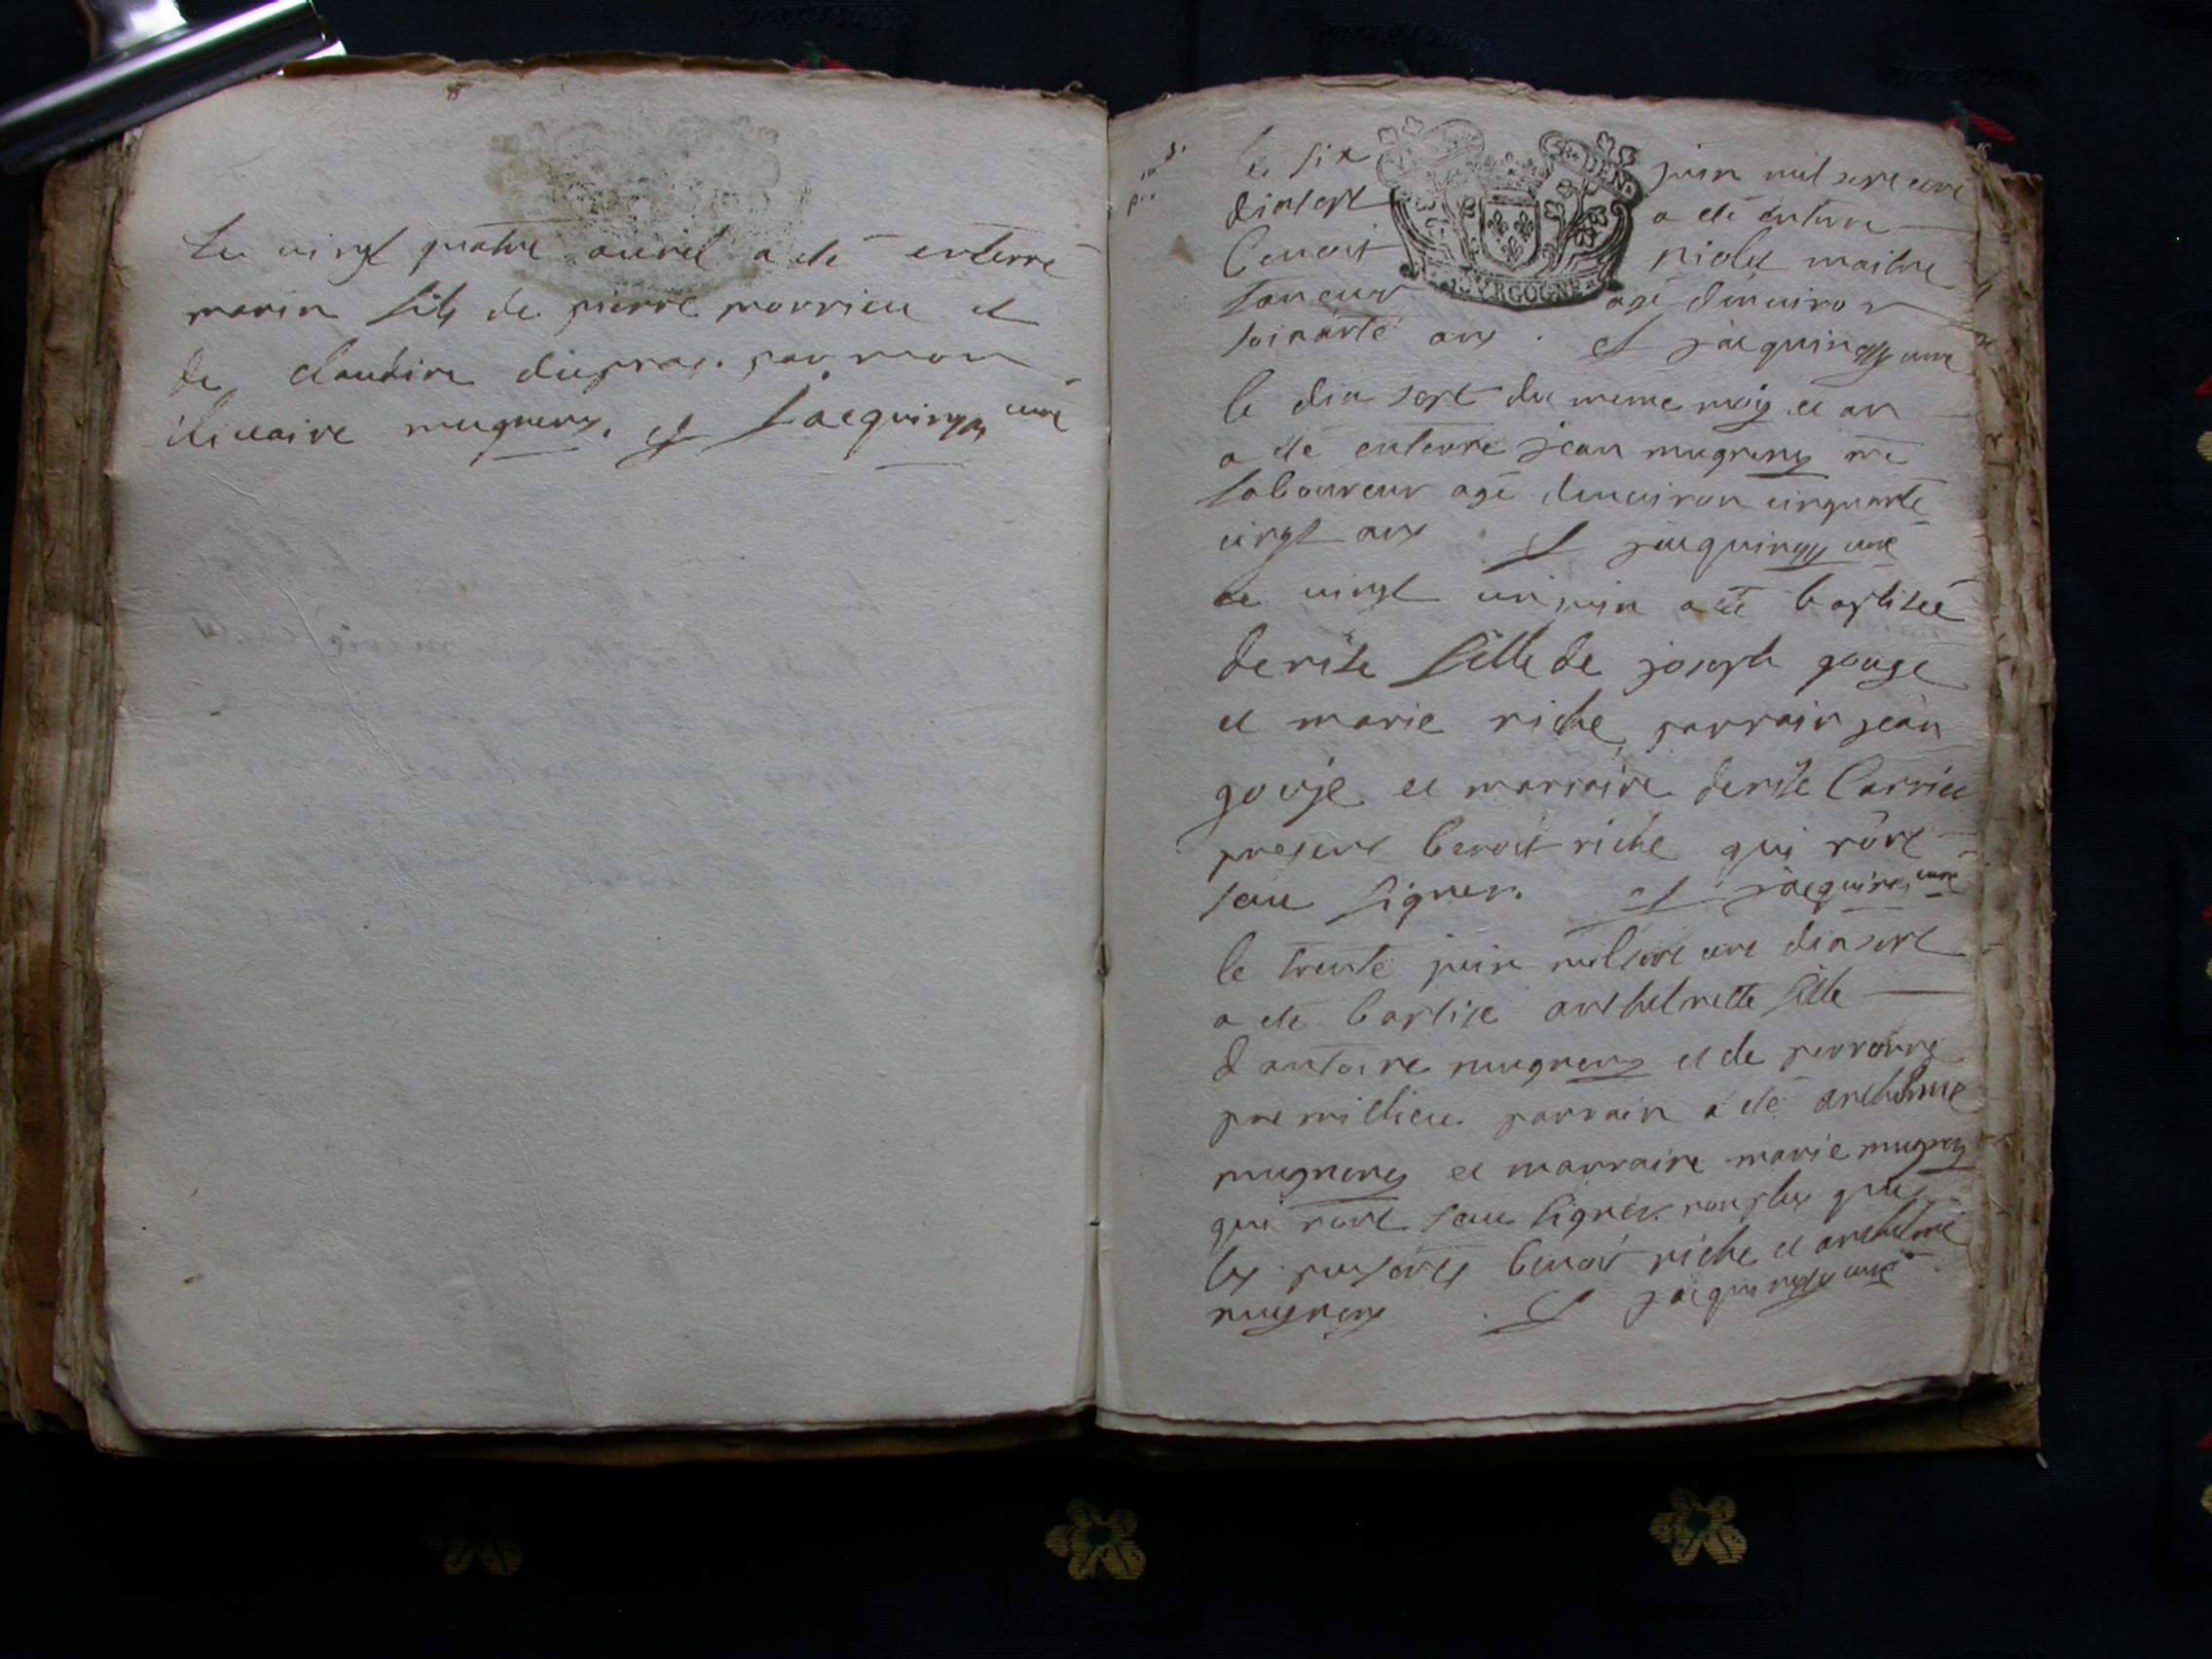 Le vingt quatre avril a été enterré
marin fils de pierre morrieu et
de claudine dupras. par mon
vicaire mugnery. et Jacquin curé
le six juin mil sept cent
dix sept a été enterré
benoit niolet maitre
agé d'environ
soixante ans. et jacquin curé
le dix sept du meme mois et an
a été enterré jean mugnery me
laboureur agé d'environ cinquante
cinq ans et jacquin curé
le vingt un juin a été baptisée
denise fille de joseph gouge
et marie riche, parrain jean
gouje et marraine denise Carrier
present benoit riche qui n'ont
sceu signer. et jacquin curé
le trente juin mil sept cent dix sept
a été baptisé anthelmette fille
d'antoine mugnery et de perronne
premillieu parrain a été anthelme
mugnery et marraine marie mugnery
qui n'ont sceu signer non plus que
les presents benoit riche et anthelme
mugnery et jacquin curé
BOURGOGNE
DEN